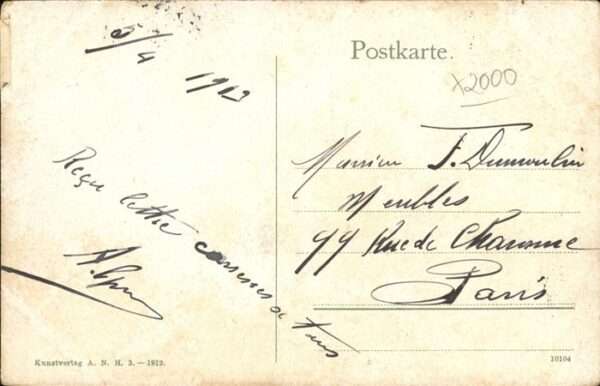 5/4 1913
Reçu lettre
Postkarte.
x2000
Monsieur F. Dumoulin
Meubles
99 Rue de Charonne
Paris
Kunstverlag A. N. H. 3. — 1912.
10104